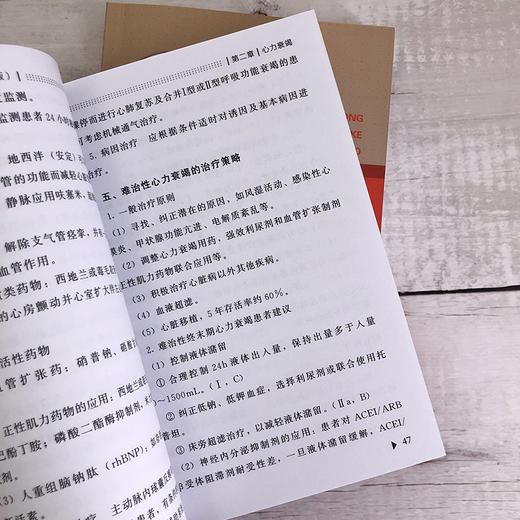 版）
监测。
监测患者24小时
地西泮（安定）
管的功能而减轻心
静脉应用呋塞米，
解除支气管痉挛，
血管作用。
类药物：西地兰或毒毛
的心房颤动并心室扩大
活性药物
管扩张药：硝普钠、硝酸
正性肌力药物的应用：西地兰或
巴酚丁胺；磷酸二酯酶抑制剂，
剂。
（3）人重组脑钠肽（rhBNP）：
活素。
主动脉内球囊
第二章 心力衰竭
骤停而进行心肺复苏及合并Ⅰ型或Ⅱ型呼吸功能衰竭的患
可考虑机械通气治疗。
5. 病因治疗 应根据条件适时对诱因及基本病因进
治疗。
五、难治性心力衰竭的治疗策略
1. 一般治疗原则
（1）寻找、纠正潜在的原因，如风湿活动、感染性心
膜炎、甲状腺功能亢进、电解质紊乱等。
（2）调整心力衰竭用药，强效利尿剂和血管扩张制剂
正性肌力药物联合应用等。
（3）积极治疗心脏病以外其他疾病。
（4）血液超滤。
（5）心脏移植，5年存活率约60%。
2. 难治性终末期心力衰竭患者建议
（1）控制液体潴留
① 合理控制24h液体出入量，保持出量多于入量
～1500mL。（Ⅰ，C）
② 纠正低钠、低钾血症，选择利尿剂或联合使用托
普坦。
③ 床旁超滤治疗，以减轻液体潴留。（Ⅱa，B）
（2）神经内分泌抑制剂的应用：患者对ACEI/ARB
β受体阻滞剂耐受性差，一旦液体潴留缓解，ACEI/
47
ONG
KE
O